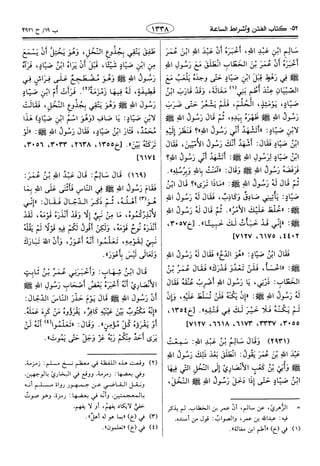 ٥٢- كتاب الفتن وأشراط الساعة
١٣٣٨
ب ١٩/ ح ٢٩٣١
سَالِمِ بْنِ عَبْدِ اللهِ، أَخْبَرَهُ أَنَّ عَبْدَ اللهِ ابْنَ عُمَرَ
أَخْبَرَهُ أَنَّ عُمَرَ بْنَ الْخَطَّابِ انْطَلَقَ مَعَ رَسُولِ اللهِ
ﷺ فِي رَهْطٍ قِبَلَ ابْنِ صَيَّادٍ حَتَّى وَجَدَهُ يَلْعَبُ مَعَ
الصِّبْيَانِ عِنْدَ أُطُمِ بَنِي مَغَالَةَ(١)، وَقَدْ قَارَبَ ابْنُ
صَيَّادٍ، يَوْمَئِذٍ، الْحُلُمَ، فَلَمْ يَشْعُرْ حَتَّى ضَرَبَ
رَسُولُ اللهِ ﷺ ظَهْرَهُ بِيَدِهِ، ثُمَّ قَالَ رَسُولُ اللهِ ﷺ
لابْنِ صَيَّادٍ: «أَتَشْهَدُ أَنِّي رَسُولُ اللهِ؟» فَنَظَرَ إِلَيْهِ
ابْنُ صَيَّادٍ فَقَالَ: أَشْهَدُ أَنَّكَ رَسُولُ الأُمِّيِّينَ، فَقَالَ
ابْنُ صَيَّادٍ لِرَسُولِ اللهِ ﷺ: أَتَشْهَدُ أَنِّي رَسُولُ اللهِ؟
فَرَفَضَهُ رَسُولُ اللهِ ﷺ وَقَالَ: «آمَنْتُ بِاللهِ وَبِرُسُلِهِ».
ثُمَّ قَالَ لَهُ رَسُولُ اللهِ ﷺ: «مَاذَا تَرَى؟» قَالَ ابْنُ
صَيَّادٍ: يَأْتِينِي صَادِقٌ وَكَاذِبٌ، فَقَالَ لَهُ رَسُولُ اللهِ
ﷺ: «خُلِّطَ عَلَيْكَ الأَمْرُ». ثُمَّ قَالَ لَهُ رَسُولُ اللهِ
ﷺ: «إِنِّي قَدْ خَبَأْتُ لَكَ خَبِيئًا». [خ٣٠٥٧،
٤٤٠٢، ٦١٧٥، ٧١٢٧]
فَقَالَ ابْنُ صَيَّادٍ: «هُوَ الدُّخُّ» فَقَالَ لَهُ رَسُولُ اللهِ
ﷺ: «اخْسَأْ، فَلَنْ تَعْدُوَ قَدْرَكَ» فَقَالَ عُمَرُ بْنُ
الْخَطَّابِ: ذَرْنِي، يَا رَسُولَ اللهِ أَضْرِبْ عُنُقَهُ فَقَالَ
لَهُ رَسُولُ اللهِ ﷺ: «إِنْ يَكُنْهُ فَلَنْ تُسَلَّطَ عَلَيْهِ، وَإِنْ
لَمْ يَكُنْهُ فَلَا خَيْرَ لَكَ فِي قَتْلِهِ». [خ١٣٥٤،
٣٠٥٥، ٣٣٣٧، ٦١٧٣، ٦٦١٨، ٧١٢٧]
(٢٩٣١) وَقَالَ سَالِمُ بْنُ عَبْدِ اللهِ: سَمِعْتُ
عَبْدَ اللهِ بْنَ عُمَرَ يَقُولُ: انْطَلَقَ بَعْدَ ذَلِكَ رَسُولُ اللهِ
ﷺ وَأُبَيُّ بْنُ كَعْبٍ الأَنْصَارِيُّ إِلَى النَّخْلِ الَّتِي فِيهَا
ابْنُ صَيَّادٍ حَتَّى إِذَا دَخَلَ رَسُولُ اللهِ ﷺ النَّخْلَ،
= الزهري، عن سالم، أنَّ عمر بن الخطاب. لم يذكر
فيه: عبدالله بن عمر، والصواب: قول من أسنده.
(١) في (خ) «أطم ابن مغالة».
طَفِقَ يَتَّقِي بِجُذُوعِ النَّخْلِ، وَهُوَ يَخْتِلُ أَنْ يَسْمَعَ
مِنِ ابْنِ صَيَّادٍ شَيْئًا، قَبْلَ أَنْ يَرَاهُ ابْنُ صَيَّادٍ، فَرَآهُ
رَسُولُ اللهِ ﷺ وَهُوَ مُضْطَجِعٌ عَلَى فِرَاشٍ فِي
قَطِيفَةٍ، لَهُ فِيهَا زَمْزَمَةٌ(٢). فَرَأَتْ أُمُّ ابْنِ صَيَّادٍ
رَسُولَ اللهِ ﷺ وَهُوَ يَتَّقِي بِجُذُوعِ النَّخْلِ، فَقَالَتْ
لابْنِ صَيَّادٍ: يَا صَافِ (وَهُوَ اسْمُ ابْنِ صَيَّادٍ) هَذَا
مُحَمَّدٌ، فَثَارَ ابْنُ صَيَّادٍ، فَقَالَ رَسُولُ اللهِ ﷺ: «لَوْ
تَرَكَتْهُ بَيَّنَ». [خ١٣٥٥، ٢٦٣٨، ٣٠٣٣، ٣٠٥٦،
٦١٧٤]
(١٦٩) قَالَ سَالِمٌ: قَالَ عَبْدُ اللهِ بْنُ عُمَرَ:
فَقَامَ رَسُولُ اللهِ ﷺ فِي النَّاسِ فَأَثْنَى عَلَى اللهِ بِمَا
هُوَ(٣) أَهْلُهُ، ثُمَّ ذَكَرَ الدَّجَّالَ فَقَالَ: «إِنِّي
لأُنْذِرُكُمُوهُ، مَا مِنْ نَبِيٍّ إِلَّا وَقَدْ أَنْذَرَهُ قَوْمَهُ، لَقَدْ
أَنْذَرَهُ نُوحٌ قَوْمَهُ، وَلَكِنْ أَقُولُ لَكُمْ فِيهِ قَوْلًا لَمْ يَقُلْهُ
نَبِيٌّ لِقَوْمِهِ، تَعَلَّمُوا أَنَّهُ أَعْوَرُ، وَأَنَّ اللهَ تَبَارَكَ
وَتَعَالَى لَيْسَ بِأَعْوَرَ».
قَالَ ابْنُ شِهَابٍ: وَأَخْبَرَنِي عُمَرُ بْنُ ثَابِتٍ
الأَنْصَارِيُّ أَنَّهُ أَخْبَرَهُ بَعْضُ أَصْحَابِ رَسُولِ اللهِ ﷺ
أَنَّ رَسُولَ اللهِ ﷺ قَالَ يَوْمَ حَذَّرَ النَّاسَ الدَّجَّالَ:
«إِنَّهُ مَكْتُوبٌ بَيْنَ عَيْنَيْهِ كَافِرٌ، يَقْرَؤُهُ مَنْ كَرِهَ عَمَلَهُ،
أَوْ يَقْرَؤُهُ كُلُّ مُؤْمِنٍ». وَقَالَ: «تَعَلَّمُوا(٤) أَنَّهُ لَنْ
يَرَى أَحَدٌ مِنْكُمْ رَبَّهُ عَزَّ وَجَلَّ حَتَّى يَمُوتَ».
(٢) وقعت هذه اللفظة في معظم نسخ مسلم: زمزمة.
وفي بعضها: رمزة. ووقع في البخاري بالوجهين.
ونقل القاضي عن جمهور رواة مسلم أنه
بالمعجمتين. وأنه في بعضها: رمزة. وهو صوت
خفيّ لا يكاد يفهم، أو لا يفهم.
(٣) في (خ) «بما هو له أهل».
(٤) في (خ) «تعلمون».